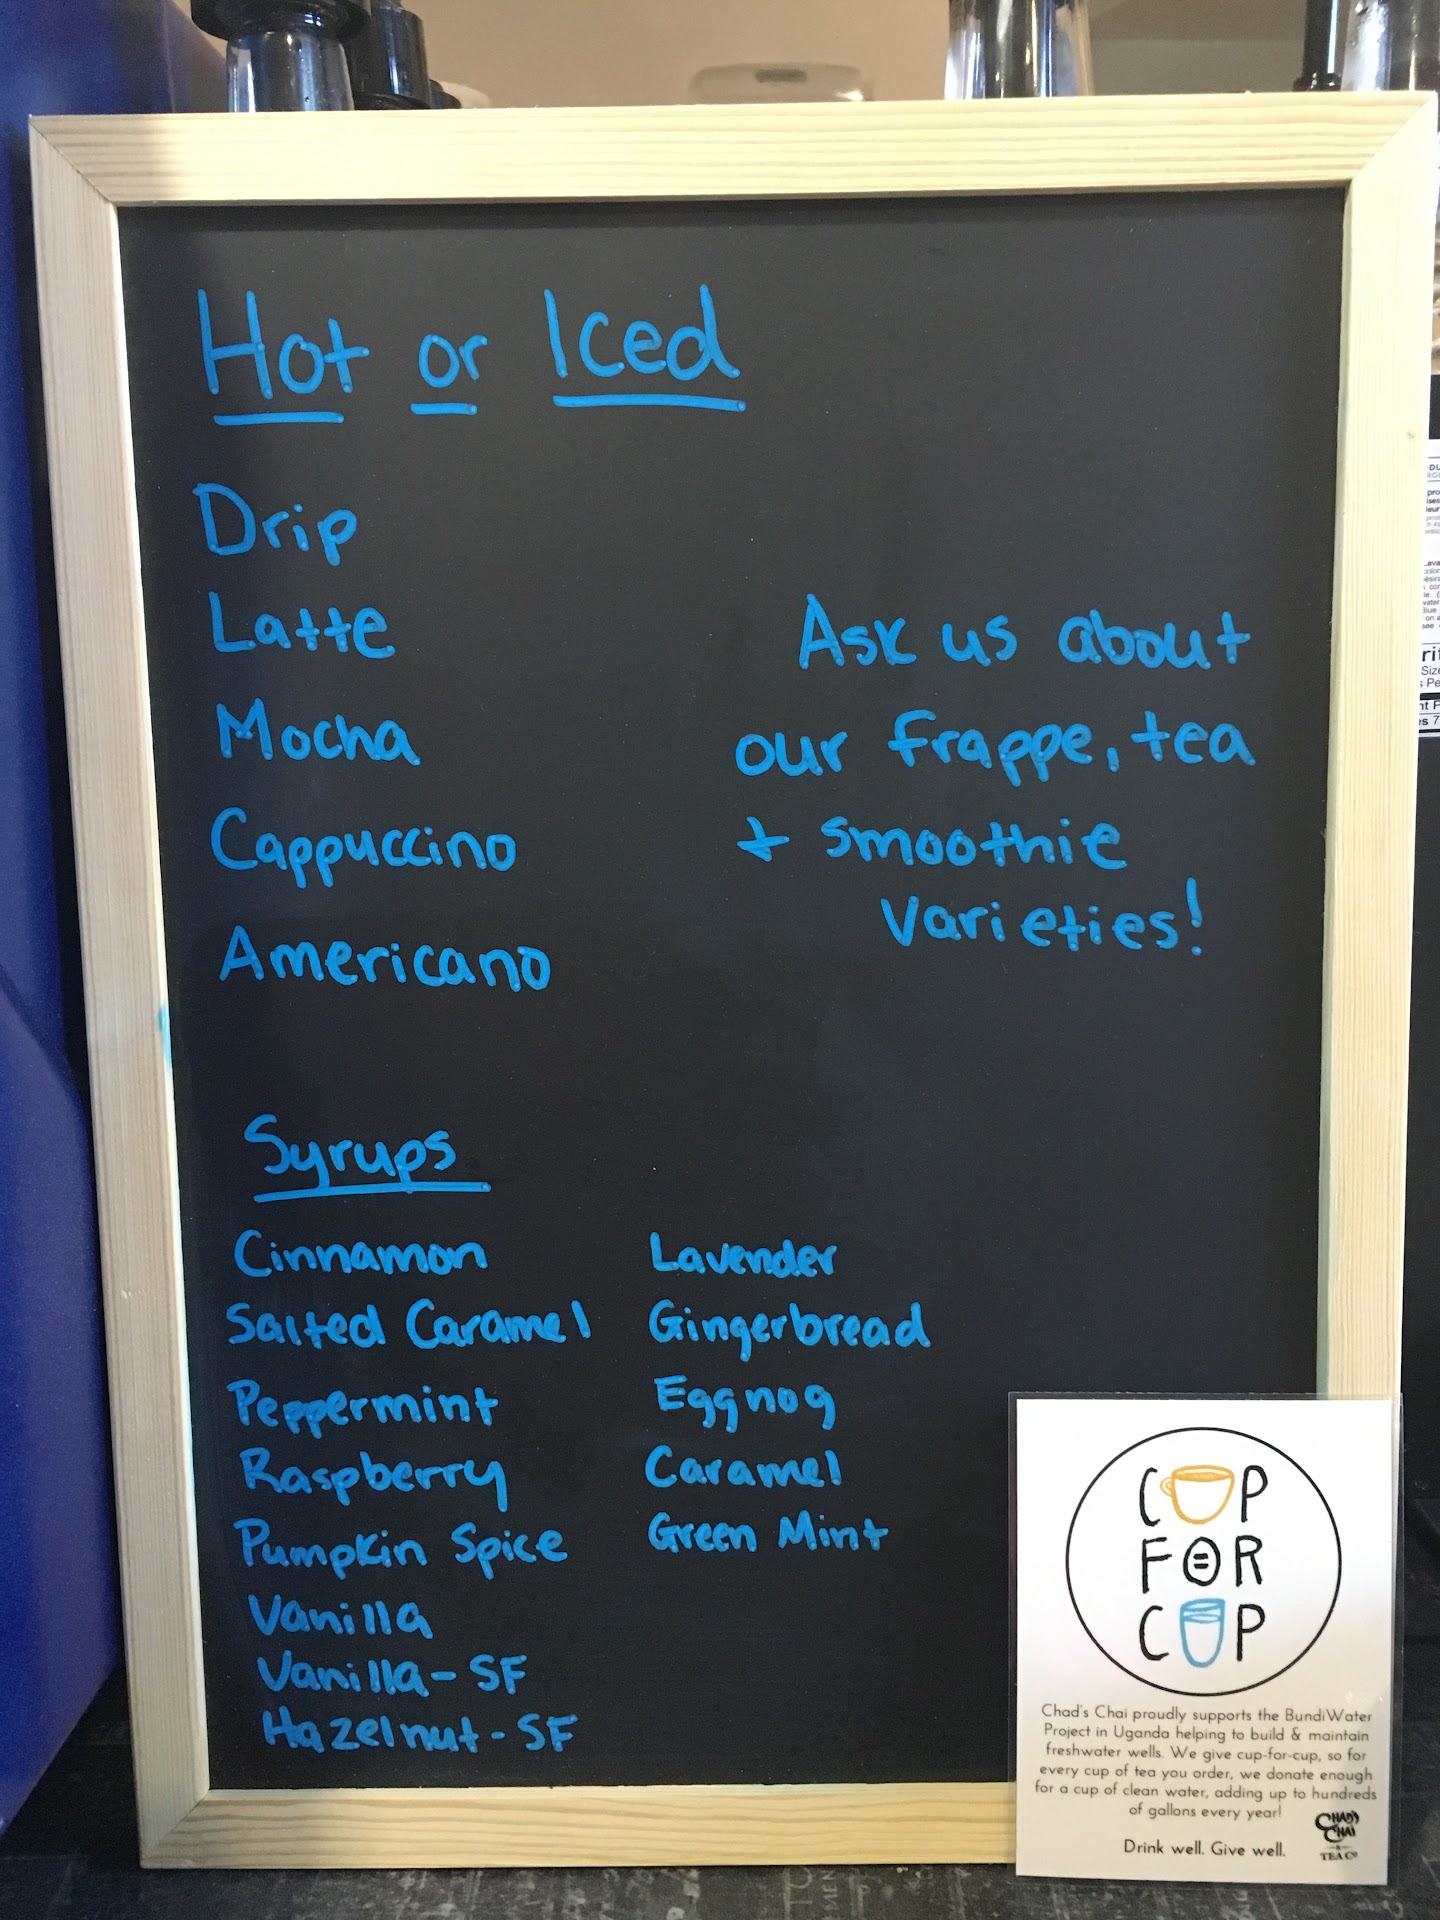 Hot or Iced
Drip
Latte
Mocha
Cappuccino
Americano
Ask us about
our frappe, tea
+ smoothie
varieties!
Syrups
Cinnamon
Salted Caramel
Peppermint
Raspberry
Pumpkin Spice
Vanilla
Vanilla - SF
Hazelnut - SF
Lavender
Gingerbread
Eggnog
Caramel
Green Mint
CUP
FOR
CUP
Chad's Chai proudly supports the BundiWater
Project in Uganda helping to build & maintain
freshwater wells. We give cup-for-cup, so for
every cup of tea you order, we donate enough
for a cup of clean water, adding up to hundreds
of gallons every year!
Drink well. Give well.
CHAD'S
CHAI
&
TEA CO